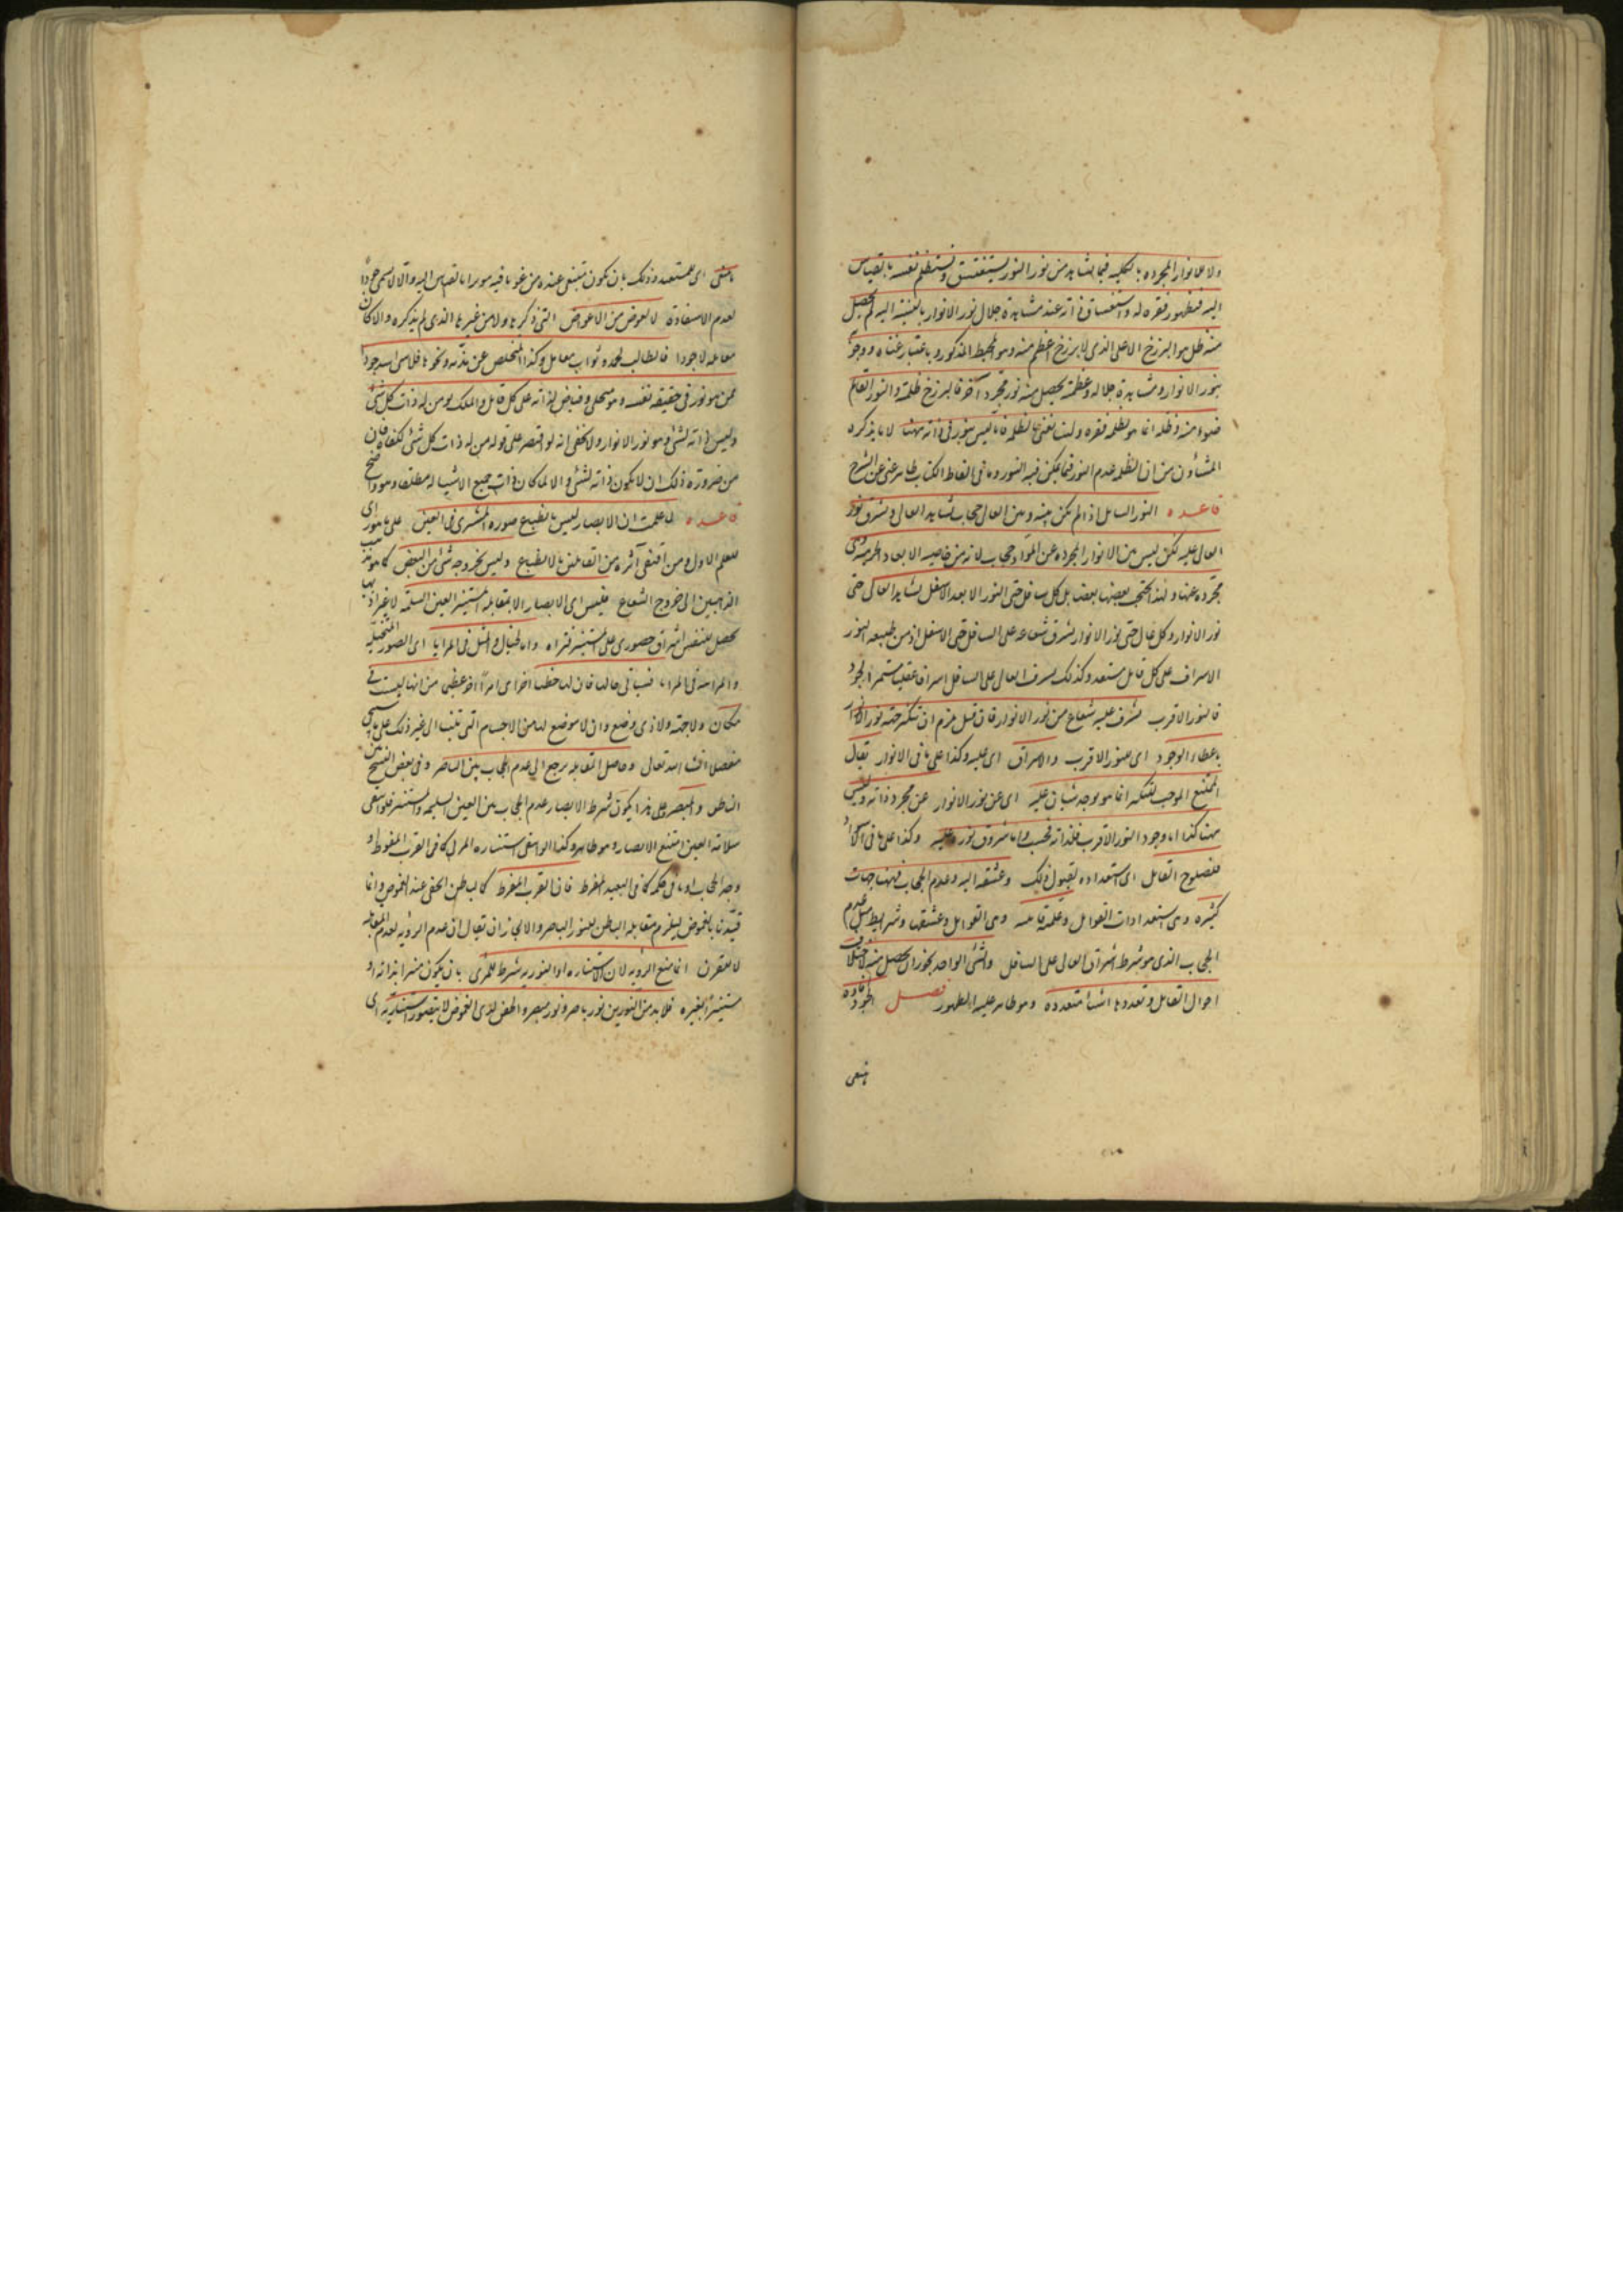 ولا للانوار المجرده بالكليه فبما يشاهد من نور النور يستغسق ويستظلم نفسه بالقياس
اليه فبظهور فقره له واستغساق ذاته عند مشاهدة جلال نور الانوار بالنسبة اليه يحصل
منه ظل هو البرزخ الاعلى الذى لا برزخ اعظم منه وهو المحيط المذكور وباعتبار غناه ووجوبه
بنور الانوار ومشاهدة جلاله وعظمته يحصل منه نور مجرد آخر فالبرزخ ظلمة والنور القائم
ضوء منه وظله انما هو لظلمة فقره ولسنا نعنى بالظلمة ما ليس بنور فى ذاته ههنا لا ما يذكره
المشاؤن من ان الظلمه عدم النور فيما يمكن فيه النور وما فى الفاظ الكتاب ظاهر غنى عن الشرح
قاعده النور السافل اذا لم يكن بينه وبين العالى حجاب يشاهد العالى ويشرق نور
العالى عليه لكن ليس بين الانوار المجرده عن المواد حجاب لانه من خاصيه الابعاد الجرميه وهى
مجرده عنها ولهذا لا يحتجب بعضها بعضا بل كل سافل حتى النور الابعد الاسفل يشاهد العالى حتى
نور الانوار وكل عال حتى نور الانوار يشرق شعاعه على السافل حتى الاسفل اذ من طبيعه النور
الاشراق على كل قابل مستعد وكذلك يشرق العالى على السافل اشراقا عقليا مستمر الوجود
فالنور الاقرب يشرق عليه شعاع من نور الانوار فان قيل يلزم ان تتكثر جهة نور الانوار
باعطاء الوجود اى للنور الاقرب والاشراق اى عليه وكذا على باقى الانوار يقال
الممتنع الموجب للتكثر انما هو ان يوجد شيئان عليه اى عن نور الانوار عن مجرد ذاته وليس
ههنا كذا اما وجود النور الاقرب فلذاته فحسب واما شروق نوره عليه وكذا على باقى
فلصلوح القابل اى استعداده لقبول ذلك وعشقه اليه وعدم الحجاب فههنا جهات
كثيره وهى استعدادات القوابل وعلة قابليه وهى القوابل وعشقها وشرايط مثل عدم
الحجاب الذى هو شرط اشراق العالى على السافل والشئ الواحد يجوز ان يحصل منه لاختلاف
احوال القابل وتعددها اشياء متعدده وهو ظاهر عليه الظهور فصل الجود افاده
ما ينبغى
ما ينبغى اى للمستعد وذلك بان يكون ينبغى عنده من غير
لعدم الاستفادة لا لعوض من الاعواض التى ذكرها ولا من غيرها الذى لم يذكره والا كان
معاملة لا جودا فالطالب لحمد وثواب معامل وكذا المتخلص عن مذمة ونحوها فلا شئ اشد جودا
ممن هو نور فى حقيقة نفسه وهو متجلى وفياض لذاته على كل قابل والملك هو من له ذات كل شئ
وليس ذاته لشئ وهو نور الانوار ولا يخفى انه لو اقتصر على قوله من له ذات كل شئ لكفاه فان
من ضرورة ذلك ان لا يكون ذاته لشئ والا لما كان ذات جميع الاشياء له مطلقا وهو واضح
قاعده لما علمت ان الابصار ليس بانطباع صورة المرئى فى العين على ما هو راى
المعلم الاول ومن اقتفى اثره من القائلين بالانطباع وليس بخروج شئ من البصر كما هو مذهب
الذاهبين الى خروج الشعاع فليس اى الابصار الا بمقابلة المستنير العين السليمه لا غير اذ بها
يحصل للنفس اشراق حضورى على المستنير فتراه واما الخيال والمثل فى المرايا اى الصور المتخيله
والمرئية فى المرايا فسياتى حالها فان لها خطبا آخر اى امرا آخر عظيم من انها ليست فى
مكان ولا جهة ولا ذى وضع وان لا موضع لها من الاجسام التى تنسب الى غير ذلك على ما سيجئ
مفصلا انشا الله تعالى وحاصل المقابلة يرجع الى عدم الحجاب بين الباصر وفى بعض النسخ بين
الناظر والمبصر وعلى هذا يكون شرط الابصار عدم الحجاب بين العين السليمه والمستنير فلو انتفى
سلامة العين امتنع الابصار وهو ظاهر وكذا لو انتفى استناره المرئى كما فى القرب المفرط او
وجد الحجاب او ما فى حكمه كما فى البعيد المفرط فان القرب المفرط كباطن الجفن عند الغموض وانما
قيدنا بالغموض ليلزم مقابلة الباطن للنور الباصر والا لجاز ان يقال ان عدم الرؤيه لعدم المقابله
لا للقرب انما منع الرؤيه لان الاستناره او النوريه شرط للمرئى بان يكون منيرا بذاته او
مستنيرا بغيره فلا بد من النورين نور باصر ونور مبصر والجفن لدى الغموض لا يتصور استنارته اى